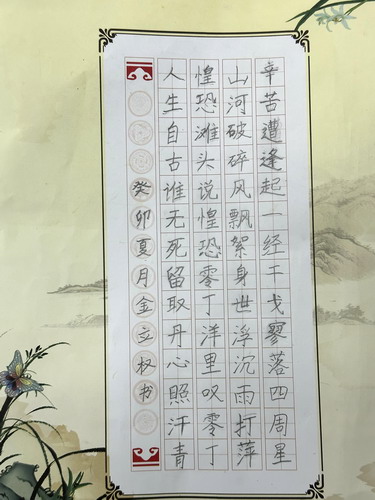 辛苦遭逢起一经干戈寥落四周星
山河破碎风飘絮身世浮沉雨打萍
惶恐滩头说惶恐零丁洋里叹零丁
人生自古谁无死留取丹心照汗青
癸卯夏月金文权书